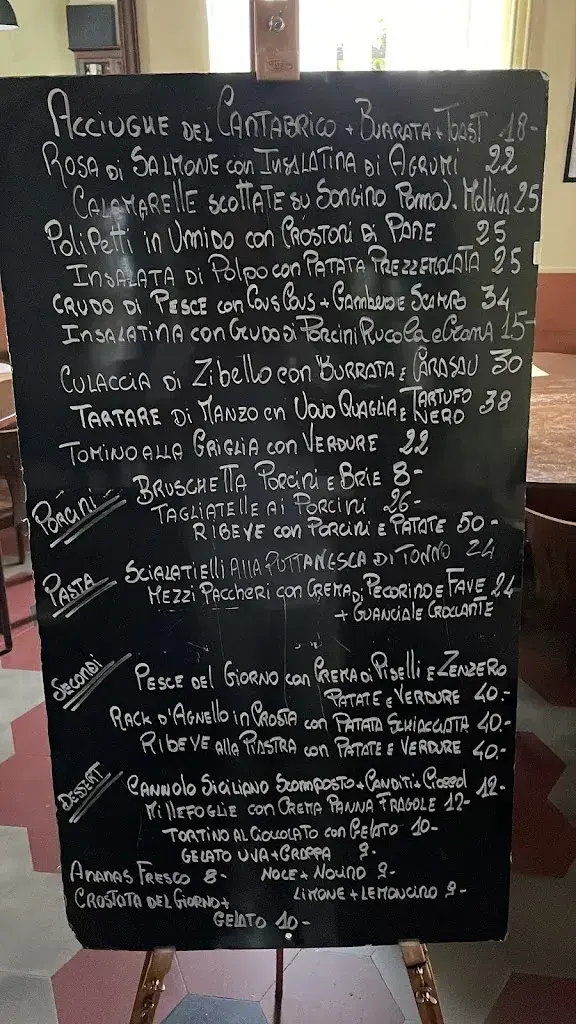 Acciughe del Cantabrico + Burrata + Toast 18-
Rosa di Salmone con Insalatina di Agrumi 22
Calamarelle scottate su Songino Pomod. Mollica 25
Polipetti in Umido con Crostoni di Pane 25
Insalata di Polpo con Patata Prezzemolata 25
Crudo di Pesce con Cous Cous + Gambero e Scampo 34
Insalatina con Crudo di Porcini Rucola e Grana 15-
Culaccia di Zibello con Burrata e Carasau 30
Tartare di Manzo con Uovo Quaglia e Tartufo Nero 38
Tomino alla Griglia con Verdure 22
Porcini Bruschetta Porcini e Brie 8-
Tagliatelle ai Porcini 26-
Ribeye con Porcini e Patate 50-
Pasta Scialatielli alla Puttanesca di Tonno 24
Mezzi Paccheri con Crema di Pecorino e Fave 24
+ Guanciale Croccante
Secondi Pesce del Giorno con Crema di Piselli e Zenzero
Patate e Verdure 40.-
Rack d'Agnello in Crosta con Patata Schiacciata 40.-
Ribeye alla Piastra con Patate e Verdure 40.-
Dessert Cannolo Siciliano Scomposto + Canditi + Cioccol 12-
Millefoglie con Crema Panna Fragole 12-
Tortino al Cioccolato con Gelato 10-
Gelato Uva + Grappa 9-
Ananas Fresco 8- Noce + Nocino 9-
Crostata del Giorno + Limone + Lemoncino 9-
Gelato 10-